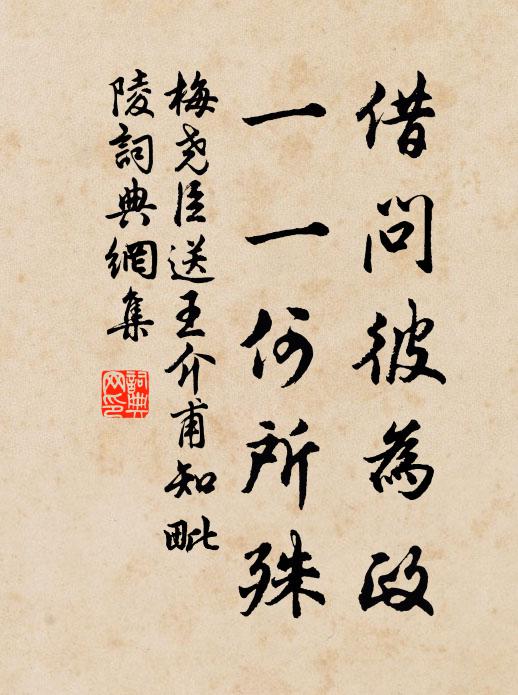 借問彼為政
一一何所殊
梅尧臣送王介甫知毗
陵詞典網集
詞典
网印